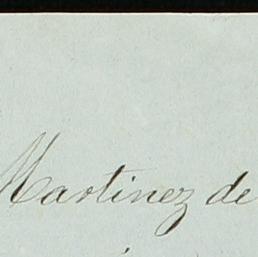 Martinez de